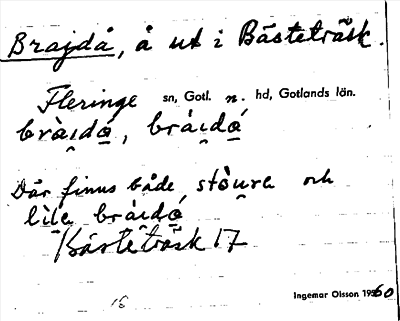 Brajdå, å ut i Bästeträsk.
Fleringe sn, Gotl. n. hd, Gotlands län.
bràıdá̲, bráıdá̲
Där finns både stòu̯ra och
lìla bráıdá̲
Bästeträsk 17
Ingemar Olsson 1960
16